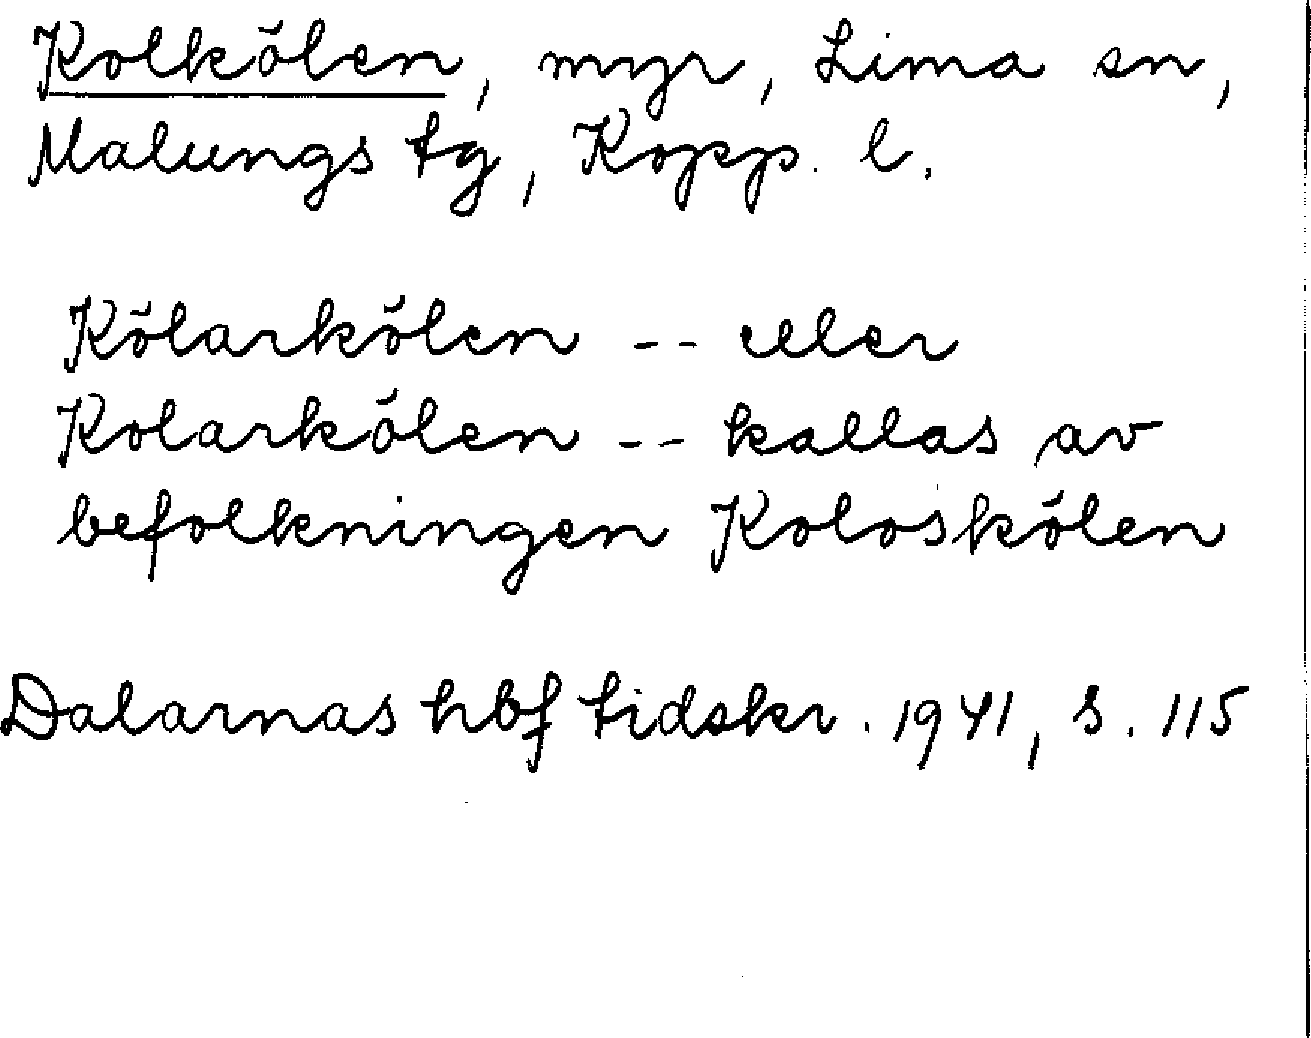 Kolkölen, myr, Lima sn,
Malungs tg, Kopp. l.
Kölarkölen -- eller
Kolarkölen -- kallas av
befolkningen Koloskölen
Dalarnas hbf tidskr. 1941, s. 115